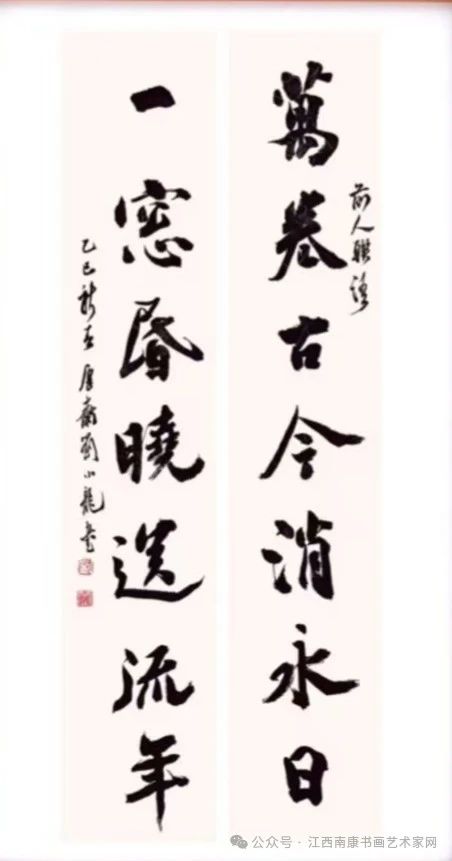 前人聯語
萬卷古今消永日
一窓昏曉送流年
乙巳新春 劉小龍書
公众号 · 江西南康书画艺术家网